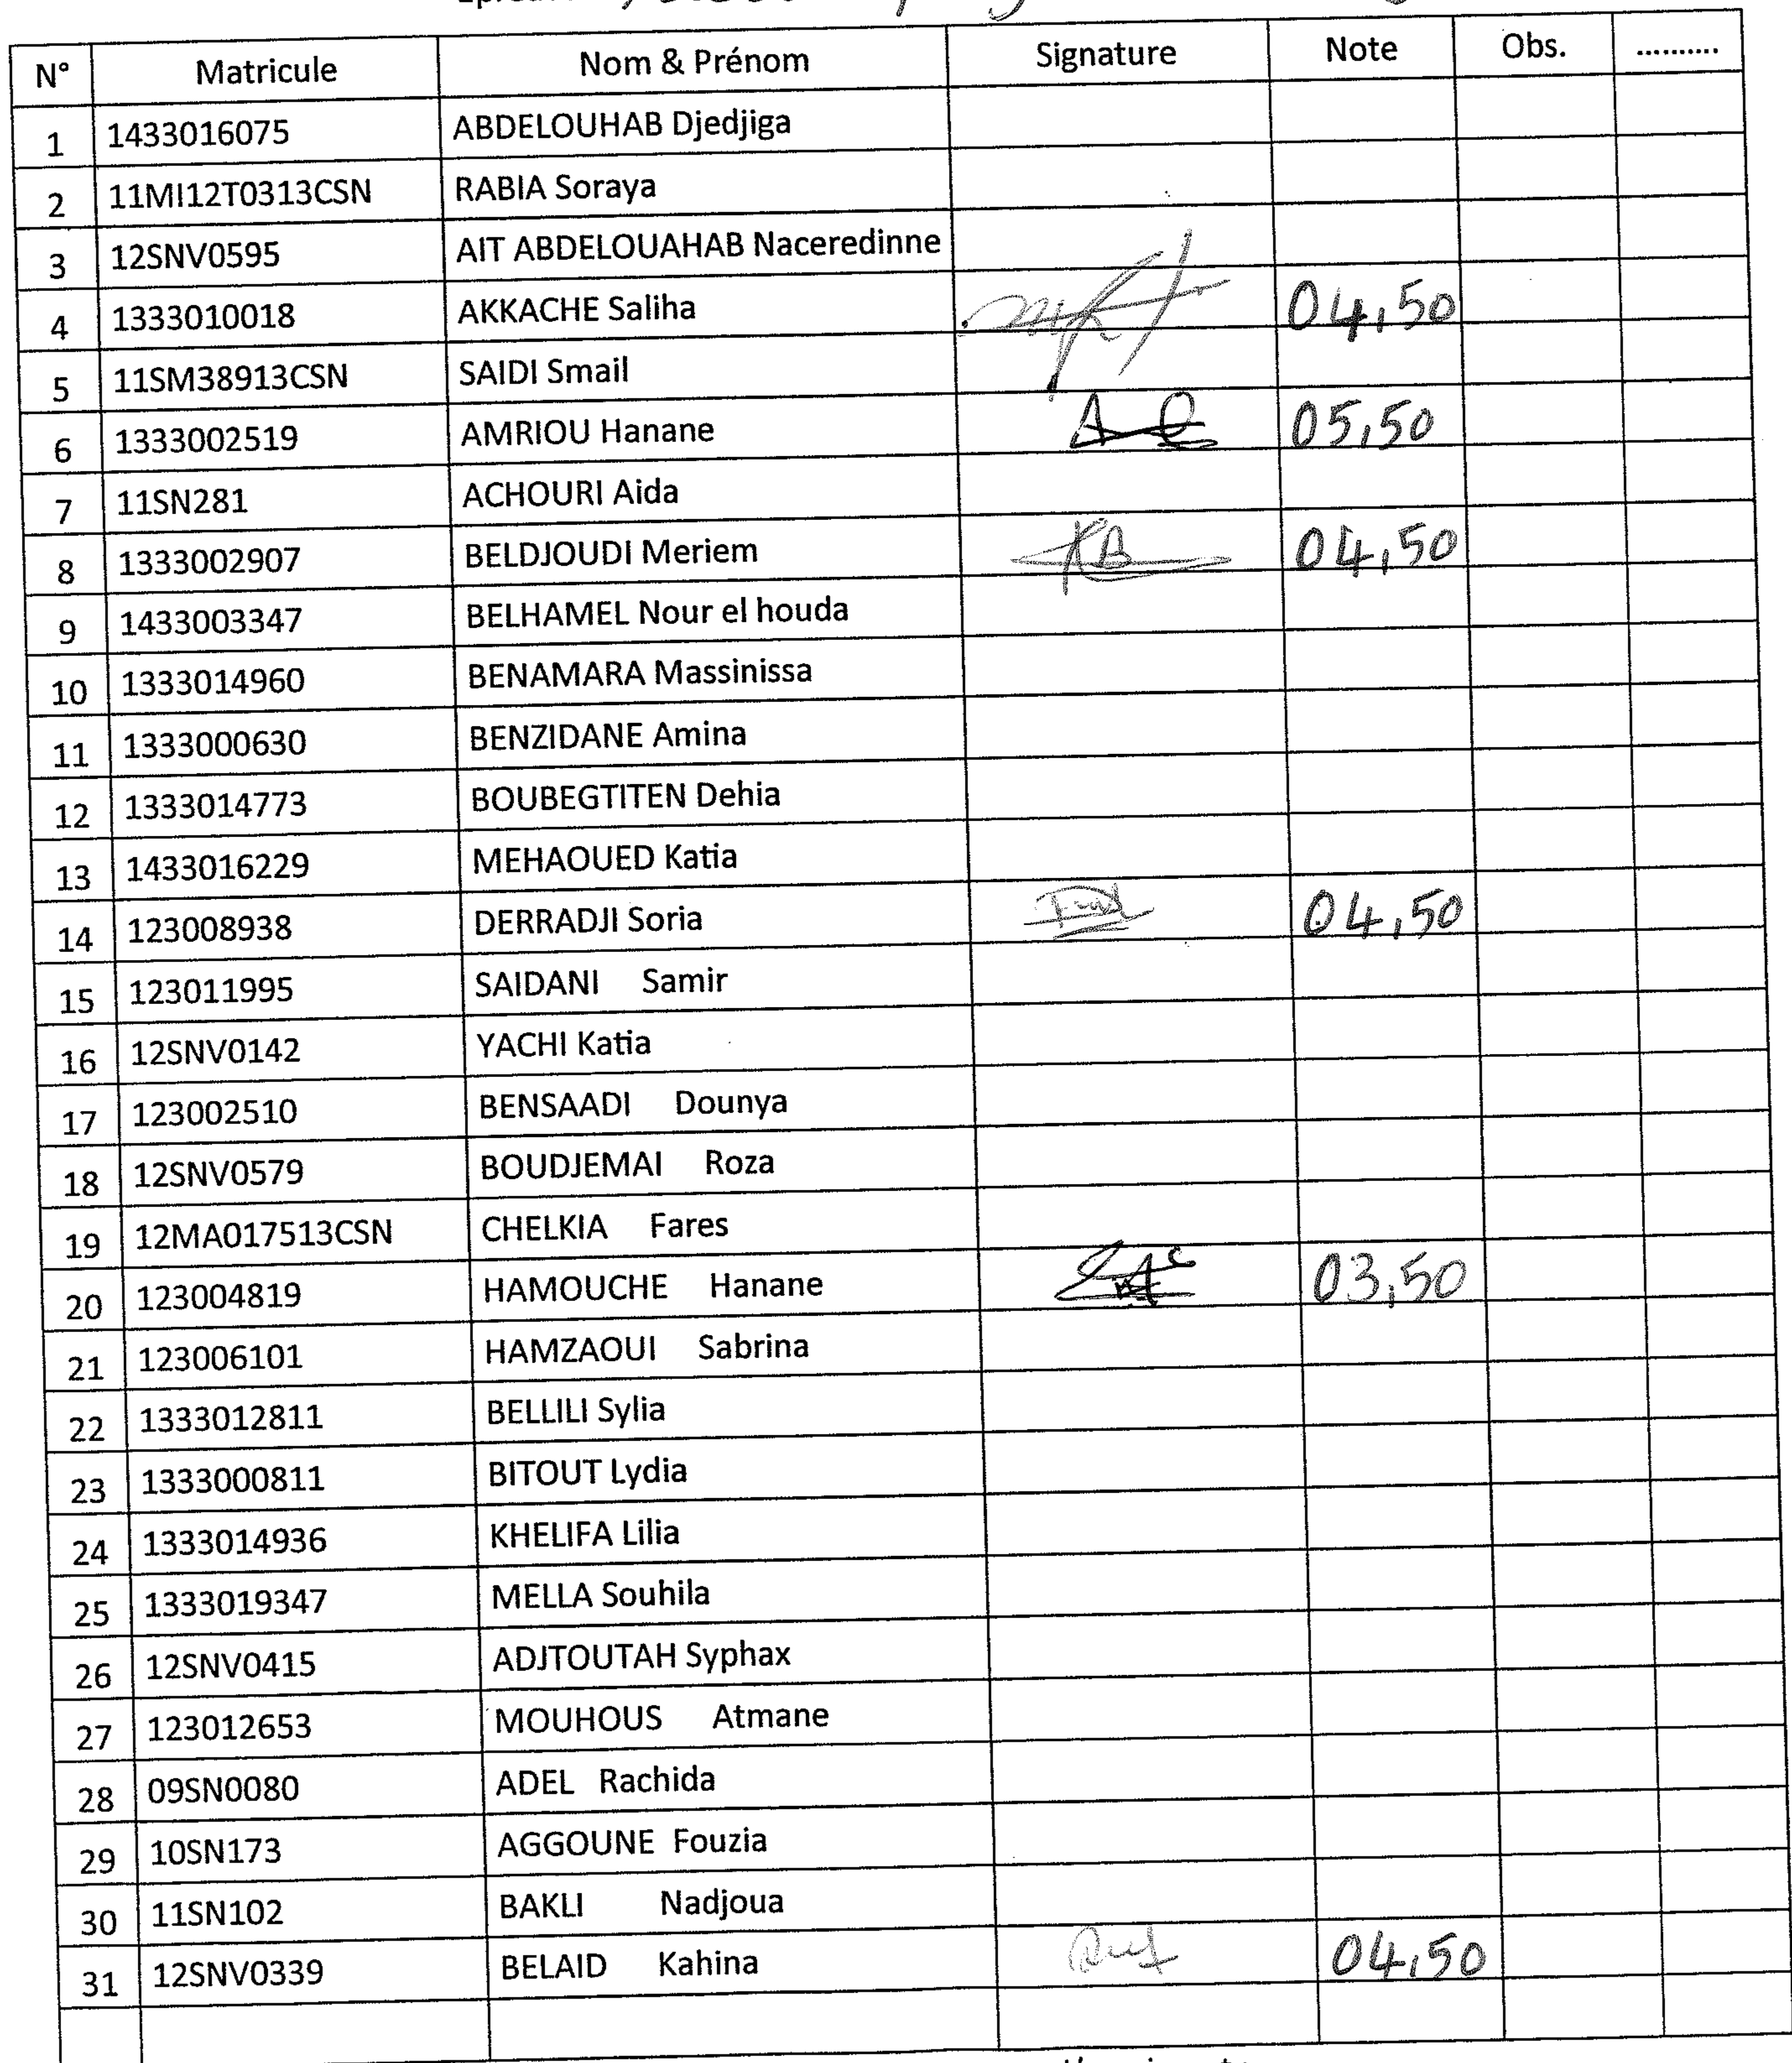 N° Matricule Nom & Prénom Signature Note Obs. ..........
1 1433016075 ABDELOUHAB Djedjiga
2 11MI12T0313CSN RABIA Soraya
3 12SNV0595 AIT ABDELOUAHAB Naceredinne
4 1333010018 AKKACHE Saliha 04,50
5 11SM38913CSN SAIDI Smail
6 1333002519 AMRIOU Hanane 05,50
7 11SN281 ACHOURI Aida
8 1333002907 BELDJOUDI Meriem 04,50
9 1433003347 BELHAMEL Nour el houda
10 1333014960 BENAMARA Massinissa
11 1333000630 BENZIDANE Amina
12 1333014773 BOUBEGTITEN Dehia
13 1433016229 MEHAOUED Katia
14 123008938 DERRADJI Soria 04,50
15 123011995 SAIDANI Samir
16 12SNV0142 YACHI Katia
17 123002510 BENSAADI Dounya
18 12SNV0579 BOUDJEMAI Roza
19 12MA017513CSN CHELKIA Fares
20 123004819 HAMOUCHE Hanane 03,50
21 123006101 HAMZAOUI Sabrina
22 1333012811 BELLILI Sylia
23 1333000811 BITOUT Lydia
24 1333014936 KHELIFA Lilia
25 1333019347 MELLA Souhila
26 12SNV0415 ADJTOUTAH Syphax
27 123012653 MOUHOUS Atmane
28 09SN0080 ADEL Rachida
29 10SN173 AGGOUNE Fouzia
30 11SN102 BAKLI Nadjoua
31 12SNV0339 BELAID Kahina 04,50